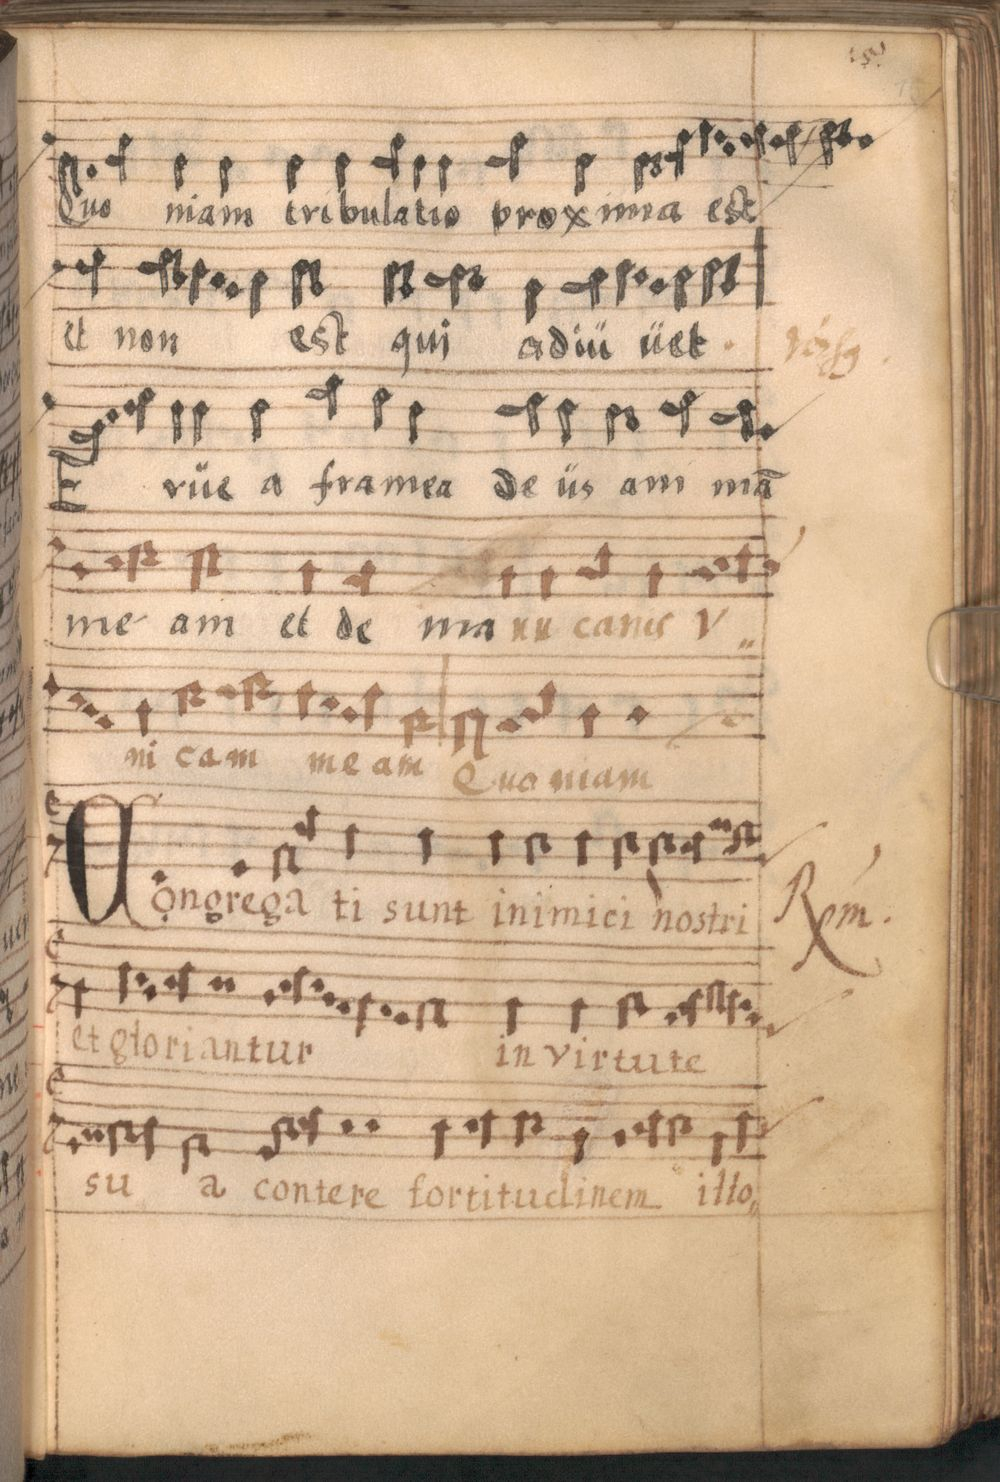 Quo niam tribulatio proxima est
et non est qui adiü üet.
E rüe a framea de üs ani mã
me am et de manu canis V„
ni cam meam Quoniam
Congrega ti sunt inimici nostri
et gloriantur in virtute
su a contere fortitudinem illo„